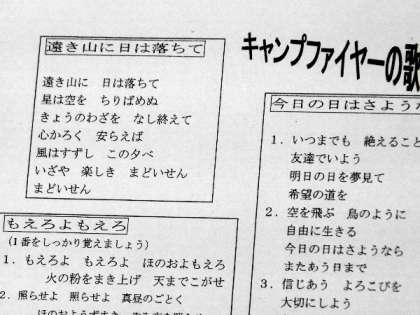 キャンプファイヤーの歌
遠き山に日は落ちて
遠き山に 日は落ちて
星は空を ちりばめぬ
きょうのわざを なし終えて
心かろく 安らえば
風はすずし この夕べ
いざや 楽しき まどいせん
まどいせん
もえろよもえろ
(1番をしっかり覚えましょう)
1. もえろよ もえろよ ほのおよもえろ
火の粉をまき上げ 天までこがせ
2. 照らせよ 照らせよ 真昼のごとく
今日の日はさよう
1. いつまでも 絶えること
友達でいよう
明日の日を夢見て
希望の道を
2. 空を飛ぶ 鳥のように
自由に生きる
今日の日はさようなら
またあう日まで
3. 信じあう よろこびを
大切にしよう